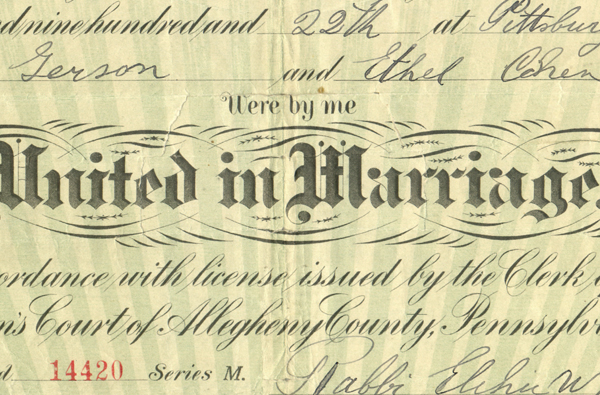 nine hundred and 22th at Pittsburg
Gerson and Ethel Cohen
Were by me
United in Marriage,
ordance with license issued by the Clerk
n's Court of Allegheny County, Pennsylv
14420 Series M.
Rabbi Elihu W